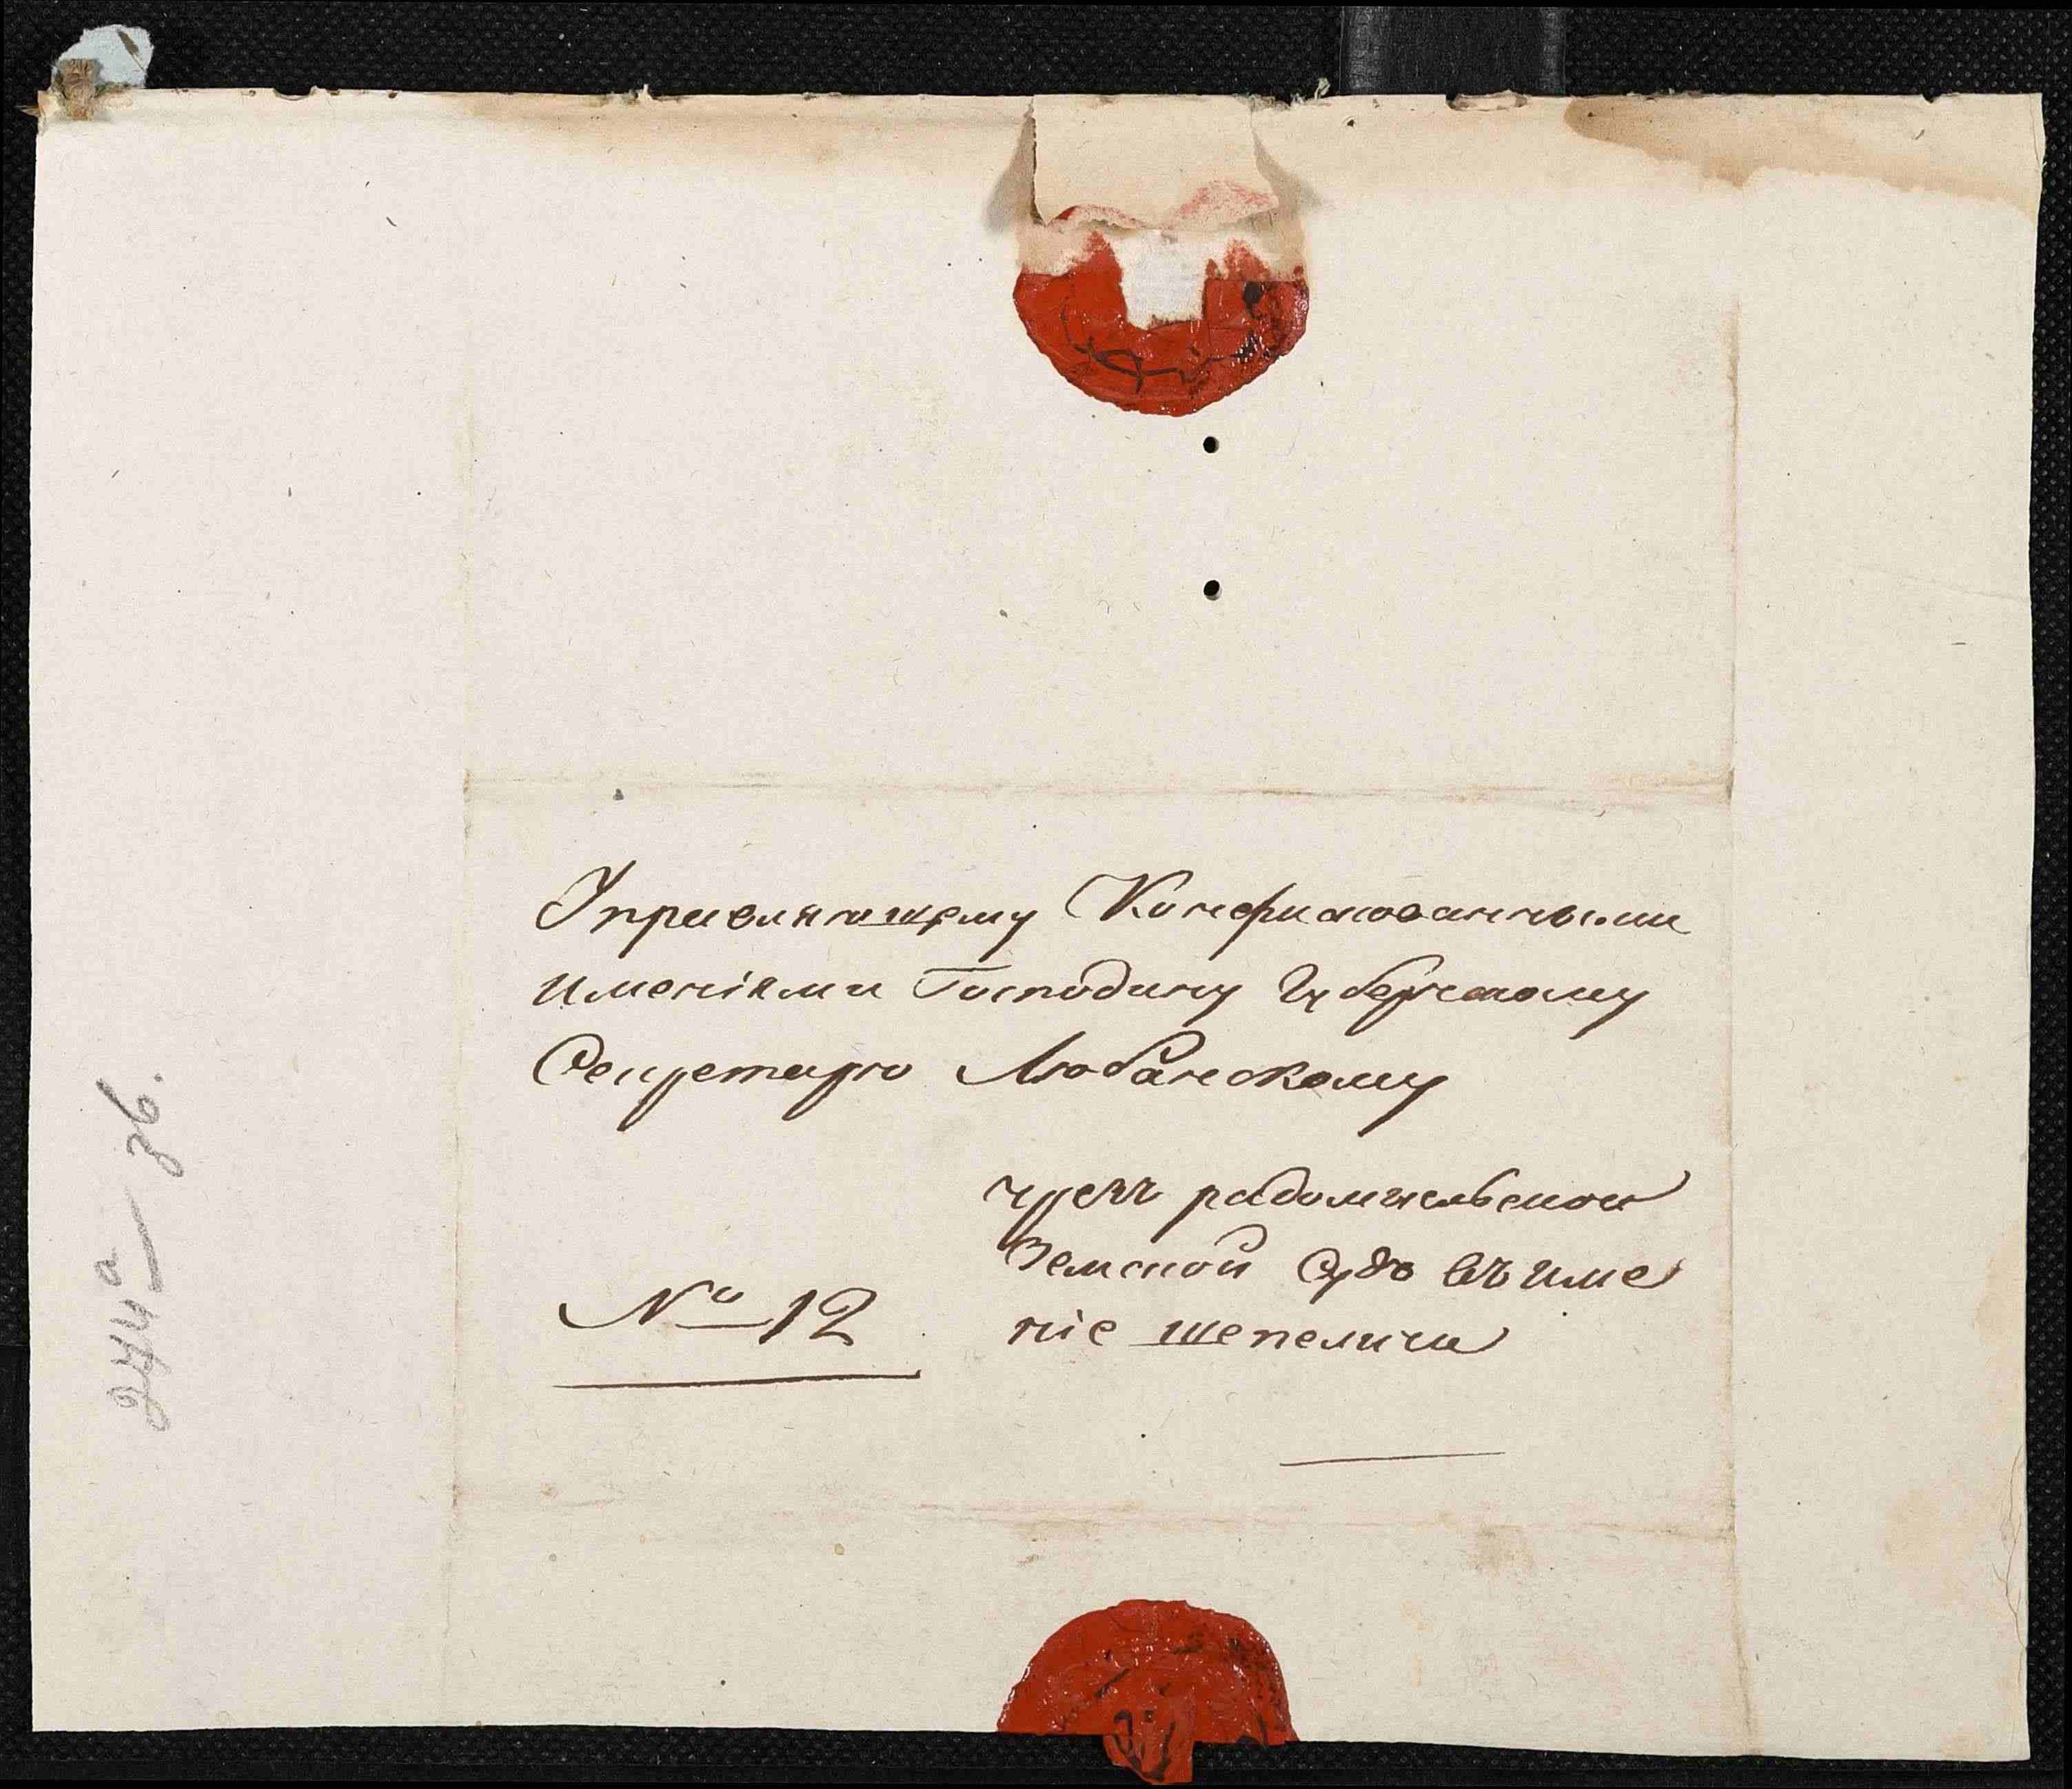 Управляющему Конфискованными
имениями Господину Губернскому
Секретарю Любанскому
чрезъ радомысльской
Земской Судъ въ име
ніе шепеличи
№ 12
244а зв.